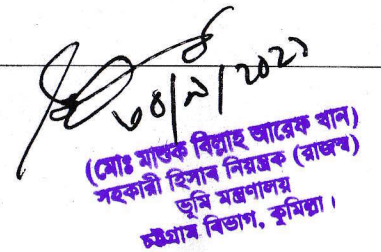 ৩০/৯/২০২১
(মোঃ মাশুক বিল্লাহ আরেফ খান)
সহকারী হিসাব নিয়ন্ত্রক (রাজস্ব)
ভূমি মন্ত্রণালয়
চট্টগ্রাম বিভাগ, কুমিল্লা।